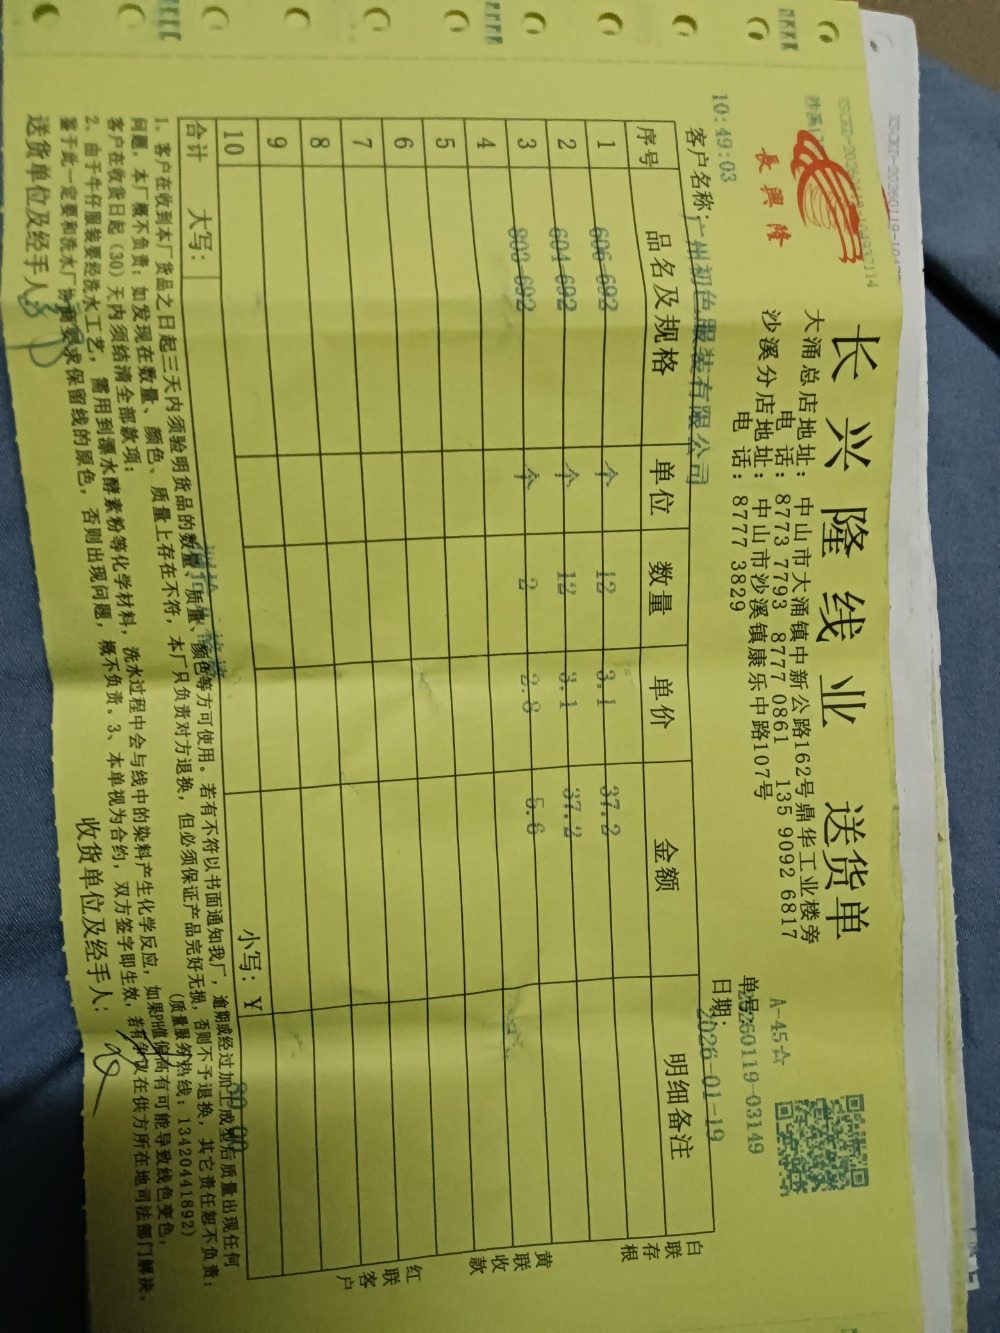 長興隆
长兴隆线业 送货单
大涌总店地址：中山市大涌镇中新公路162号鼎华工业楼旁
电话：8773 7793 8777 0861 135 9092 6817
沙溪分店地址：中山市沙溪镇康乐中路107号
电话：8777 3829
A-45☆
单号：20260119-03149
10:49:03
客户名称：广州初色服装有限公司
日期：2026-01-19
序号 品名及规格 单位 数量 单价 金额 明细备注
1 606-692 个 12 3.1 37.2
2 604-692 个 12 3.1 37.2
3 803-692 个 2 2.8 5.6
4
5
6
7
8
9
10
合计 大写： 小写：￥ 80.00
白联存根
黄联收款
红联客户
1、客户在收到本厂货品之日起三天内须验明货品的数量、质量、颜色等方可使用。若有不符以书面通知我厂，逾期或经过加工成型后质量出现任何
问题，本厂概不负责；如发现在数量、颜色、质量上存在不符，本厂只负责对方退换，但必须保证产品完好无损，否则不予退换，其它责任恕不负责；
客户在收货日起（30）天内须结清全部款项；
（质量服务热线：13420441892）
2、由于牛仔服装要经洗水工艺，需用到漂水酵素粉等化学材料，洗水过程中会与线中的染料产生化学反应，如果PH值偏高有可能导致线色变色，
鉴于此一定要和洗水厂协商要求保留线的原色，否则出现问题，概不负责。3、本单视为合约，双方签字即生效，若有争议在供方所在地司法部门解决。
送货单位及经手人： 收货单位及经手人：